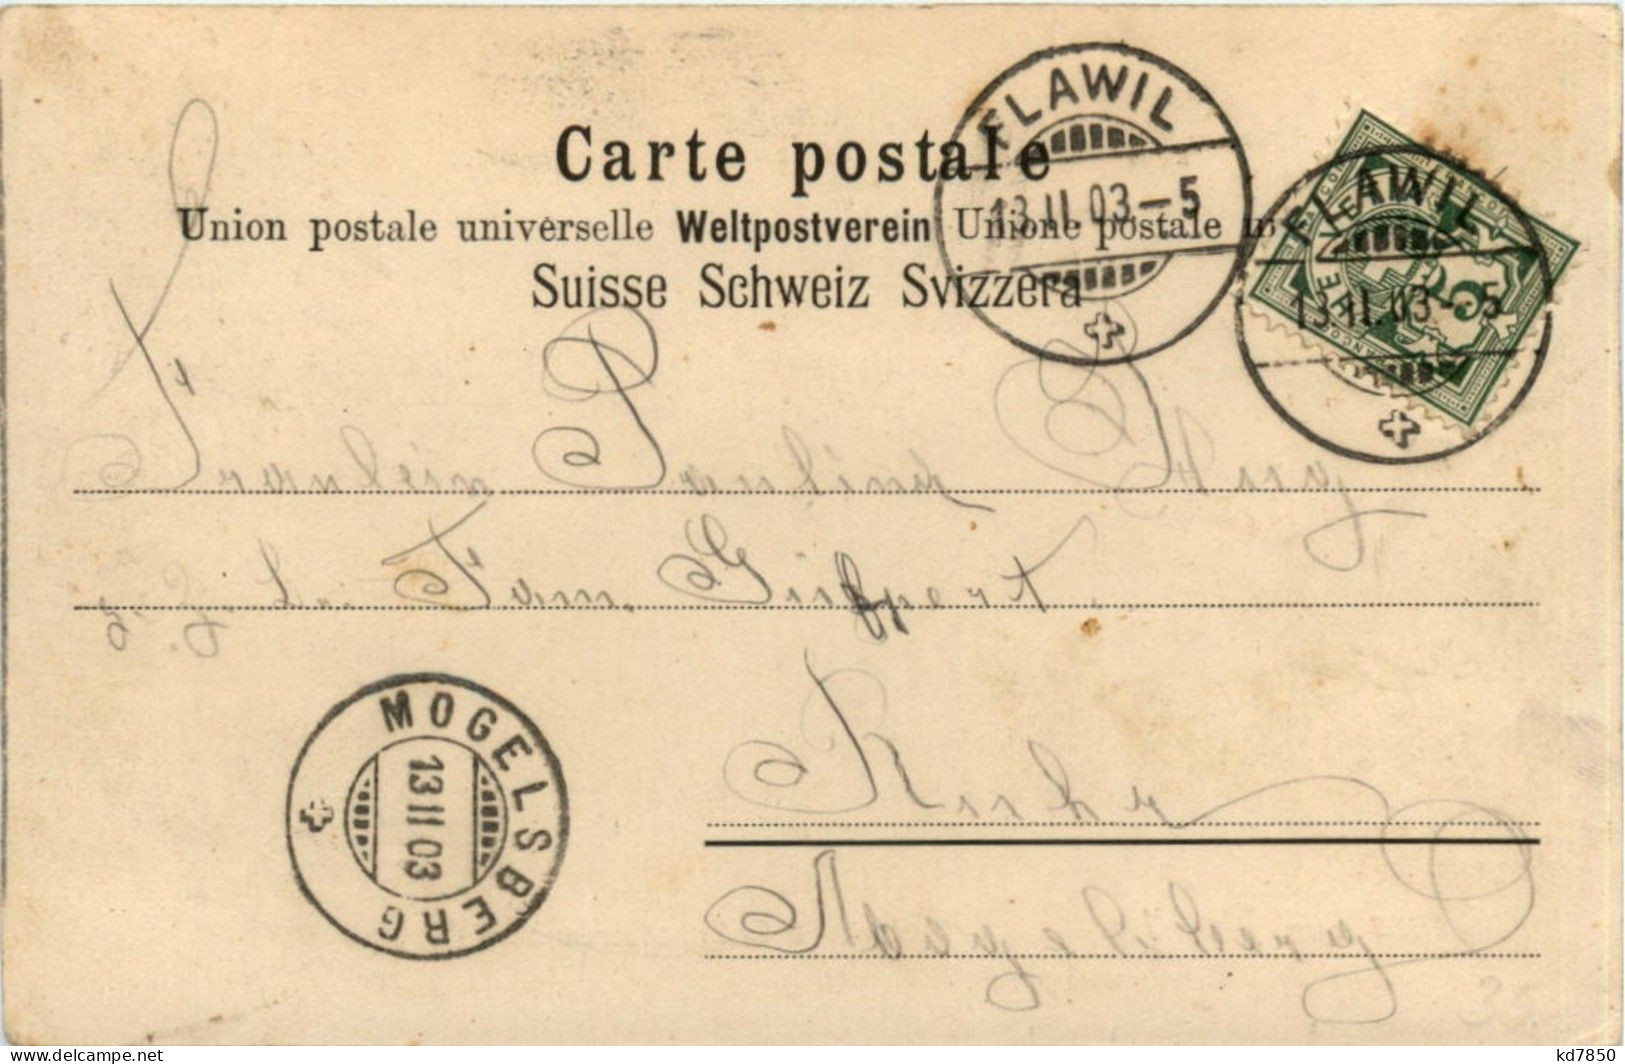 Carte postale
Union postale universelle Weltpostverein Unione postale
Suisse Schweiz Svizzera
FLAWIL
13.II.03-5
FLAWIL
13.II.03-5
5
Fräulein Paulina Hug
z. Fam.
Ruhr
Mogelsberg
MOGELSBERG
13 III 03
kd7850